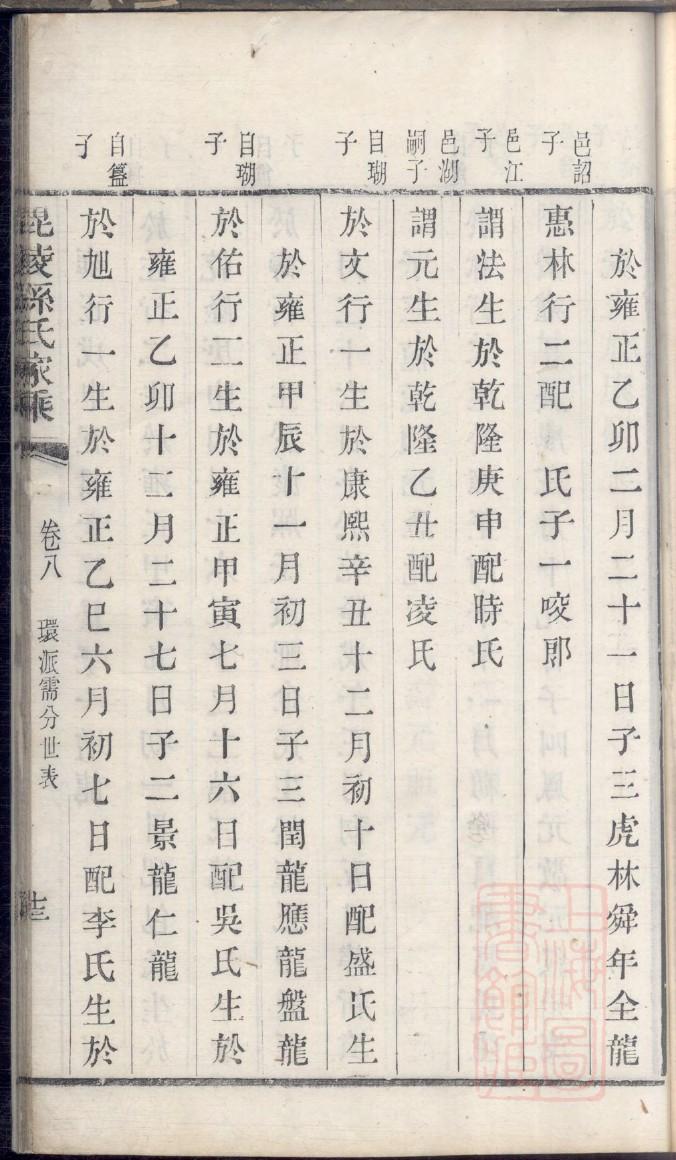 於雍正乙卯二月二十一日子三虎林舜年全龍
邑詔子
惠林行二配　氏子一咬郎
邑江子
謂法生於乾隆庚申配時氏
邑湖嗣子
謂元生於乾隆乙丑配凌氏
自瑚子
於文行一生於康熙辛丑十二月初十日配盛氏生
於雍正甲辰十一月初三日子三閏龍應龍盤龍
自瑚子
於佑行二生於雍正甲寅七月十六日配吳氏生於
雍正乙卯十二月二十七日子二景龍仁龍
自簋子
於旭行一生於雍正乙巳六月初七日配李氏生於
毘陵孫氏家乘
卷八　環派需分世表
上海圖書館藏